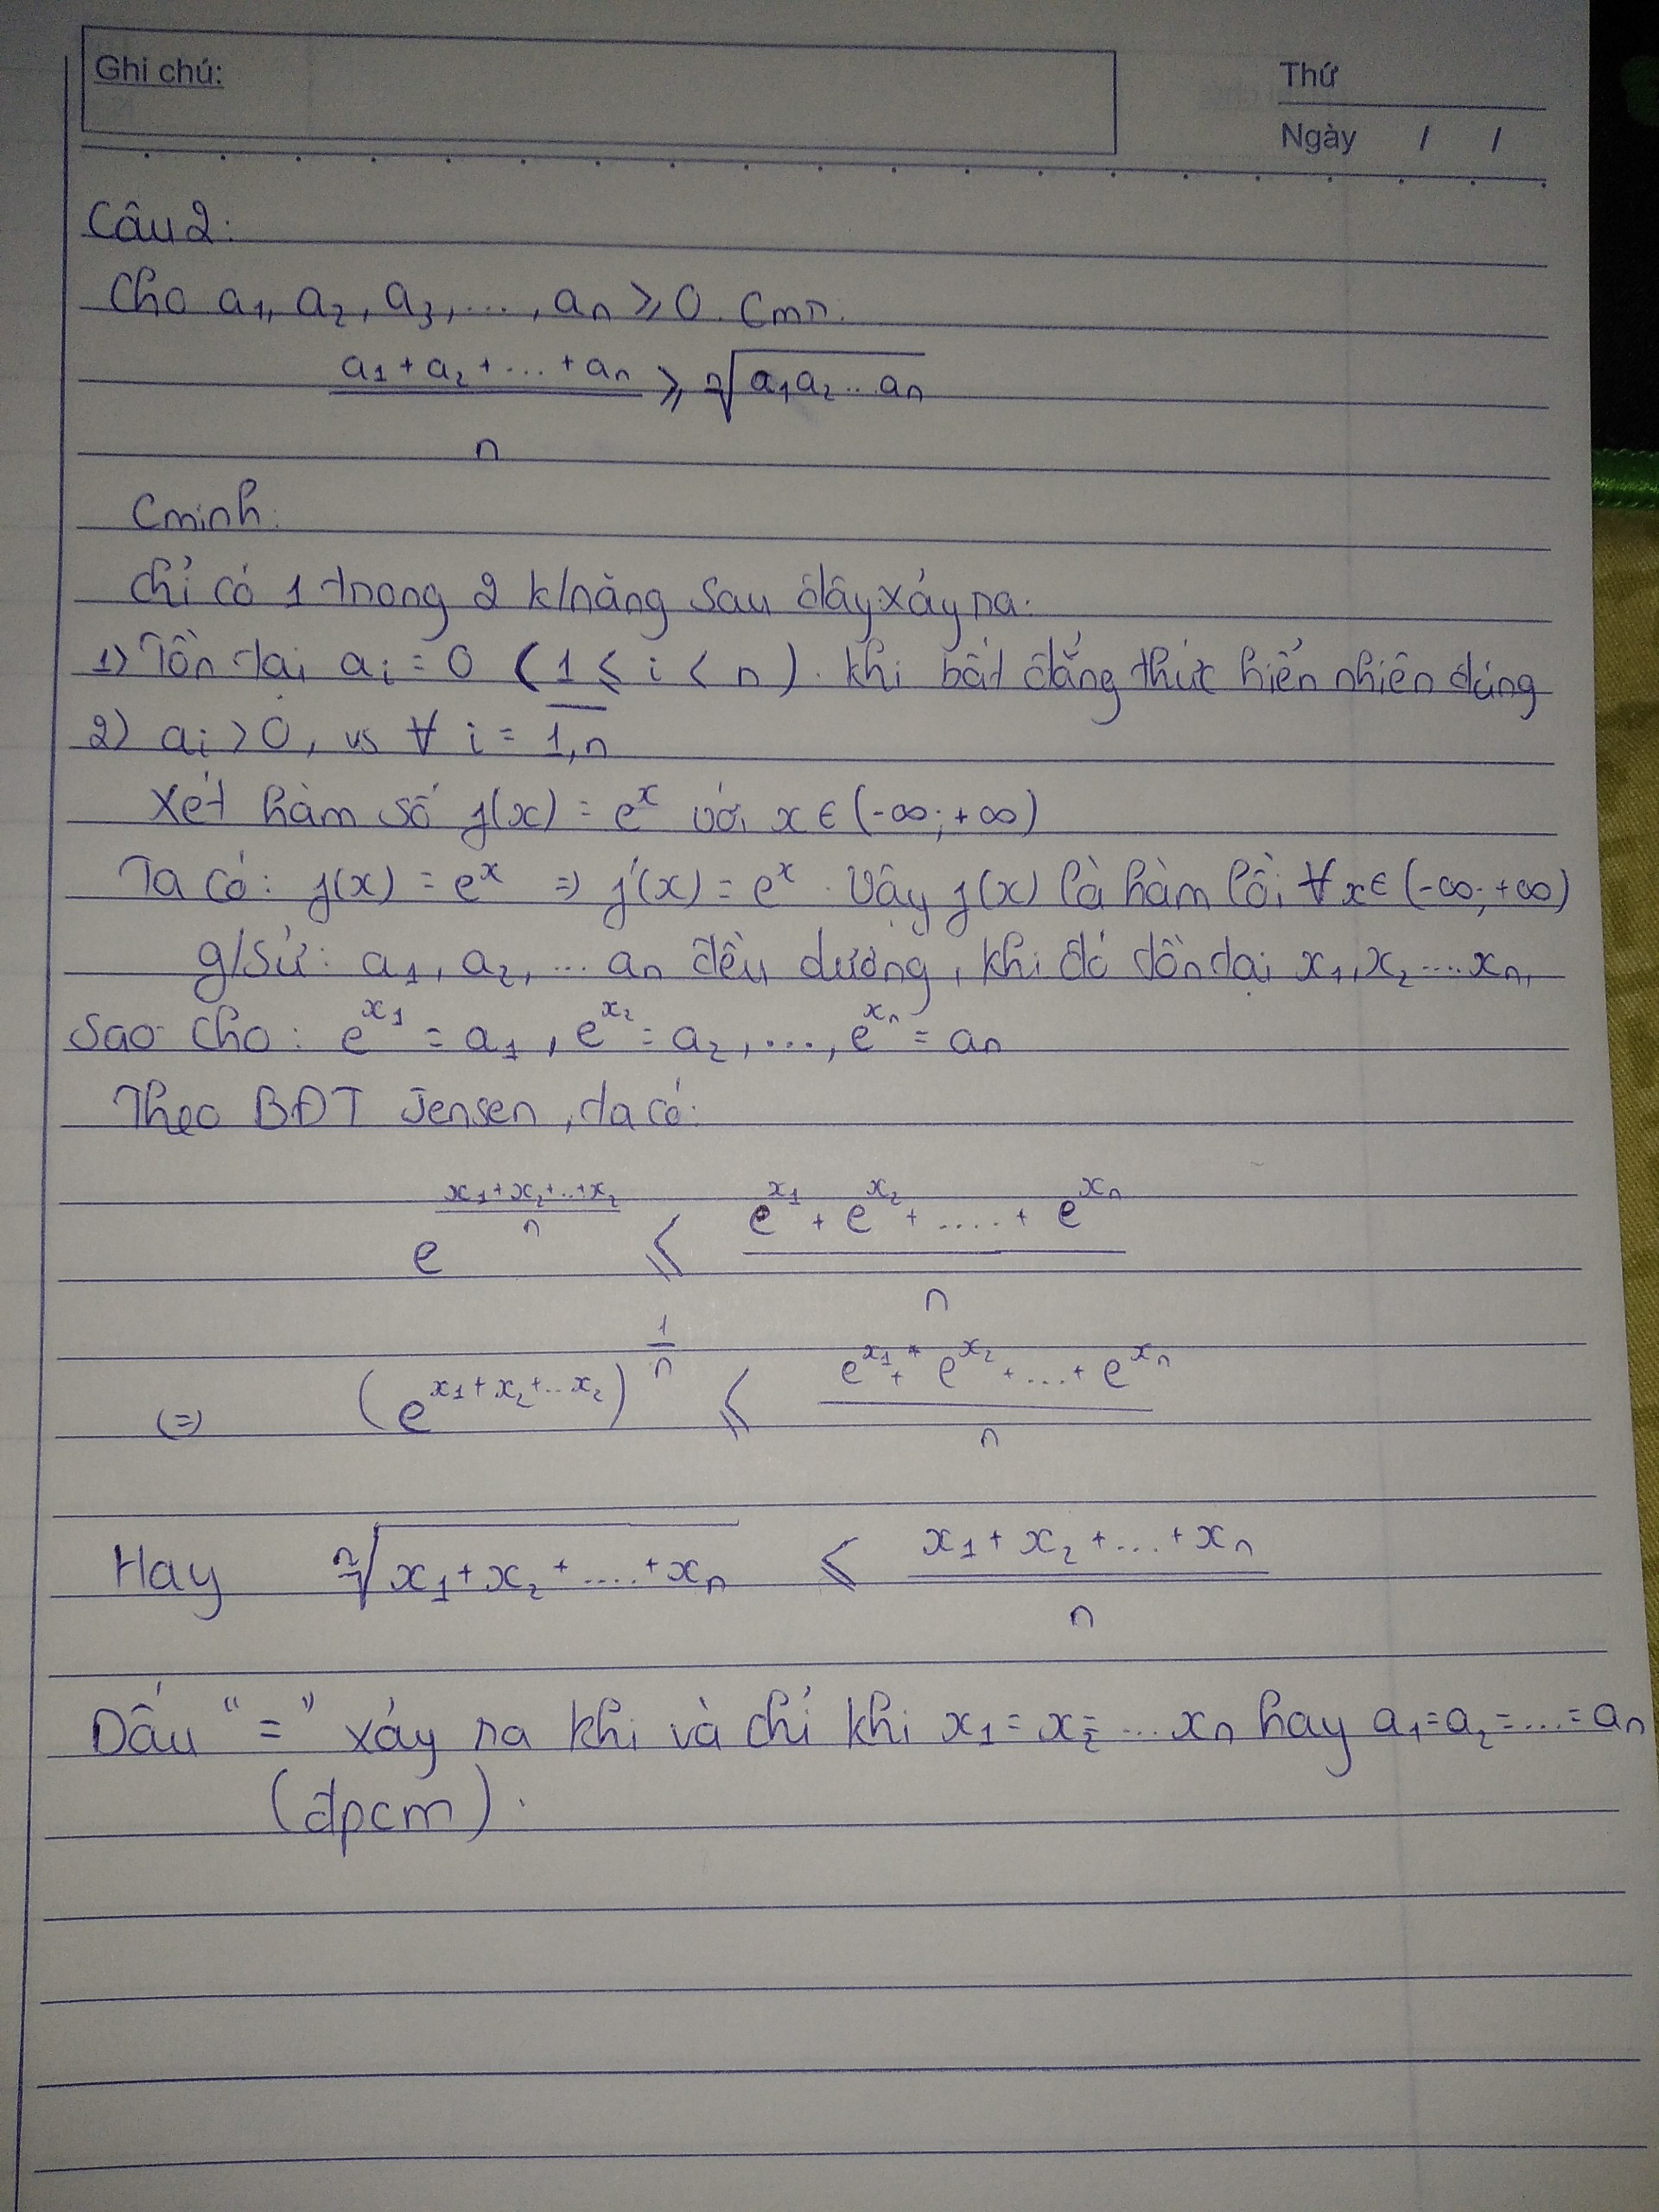 Ghi chú:
Thứ
Ngày / /
Câu 2:
Cho a₁, a₂, a₃, ..., aₙ ⩾ 0. Cmr.
(a₁ + a₂ + ... + aₙ)/n ⩾ ⁿ√(a₁a₂...aₙ)
Cminh:
Chỉ có 1 trong 2 k/năng sau đây xảy ra:
1) Tồn tại aᵢ = 0 (1 ⩽ i < n). Khi bất đẳng thức hiển nhiên đúng
2) aᵢ > 0, vs ∀ i = 1,n
Xét hàm số f(x) = e^x với x ∈ (-∞; +∞)
Ta có: f(x) = e^x ⇒ f'(x) = e^x. Vậy f(x) là hàm lồi ∀x ∈ (-∞; +∞)
g/sử: a₁, a₂, ... aₙ đều dương, khi đó tồn tại x₁, x₂ .... xₙ,
sao cho: e^x₁ = a₁, e^x₂ = a₂, ..., e^xₙ = aₙ
Theo BĐT Jensen, ta có:
e^((x₁+x₂+..+x₂)/n) ⩽ (e^x₁ + e^x₂ + ..... + e^xₙ)/n
(=) (e^(x₁+x₂+..x₂))^(1/n) ⩽ (e^x₁ + e^x₂ + .... + e^xₙ)/n
Hay ⁿ√(x₁+x₂+....+xₙ) ⩽ (x₁+x₂+...+xₙ)/n
Dấu "=" xảy ra khi và chỉ khi x₁ = x₂ = ... xₙ hay a₁=a₂=...=aₙ
(đpcm).